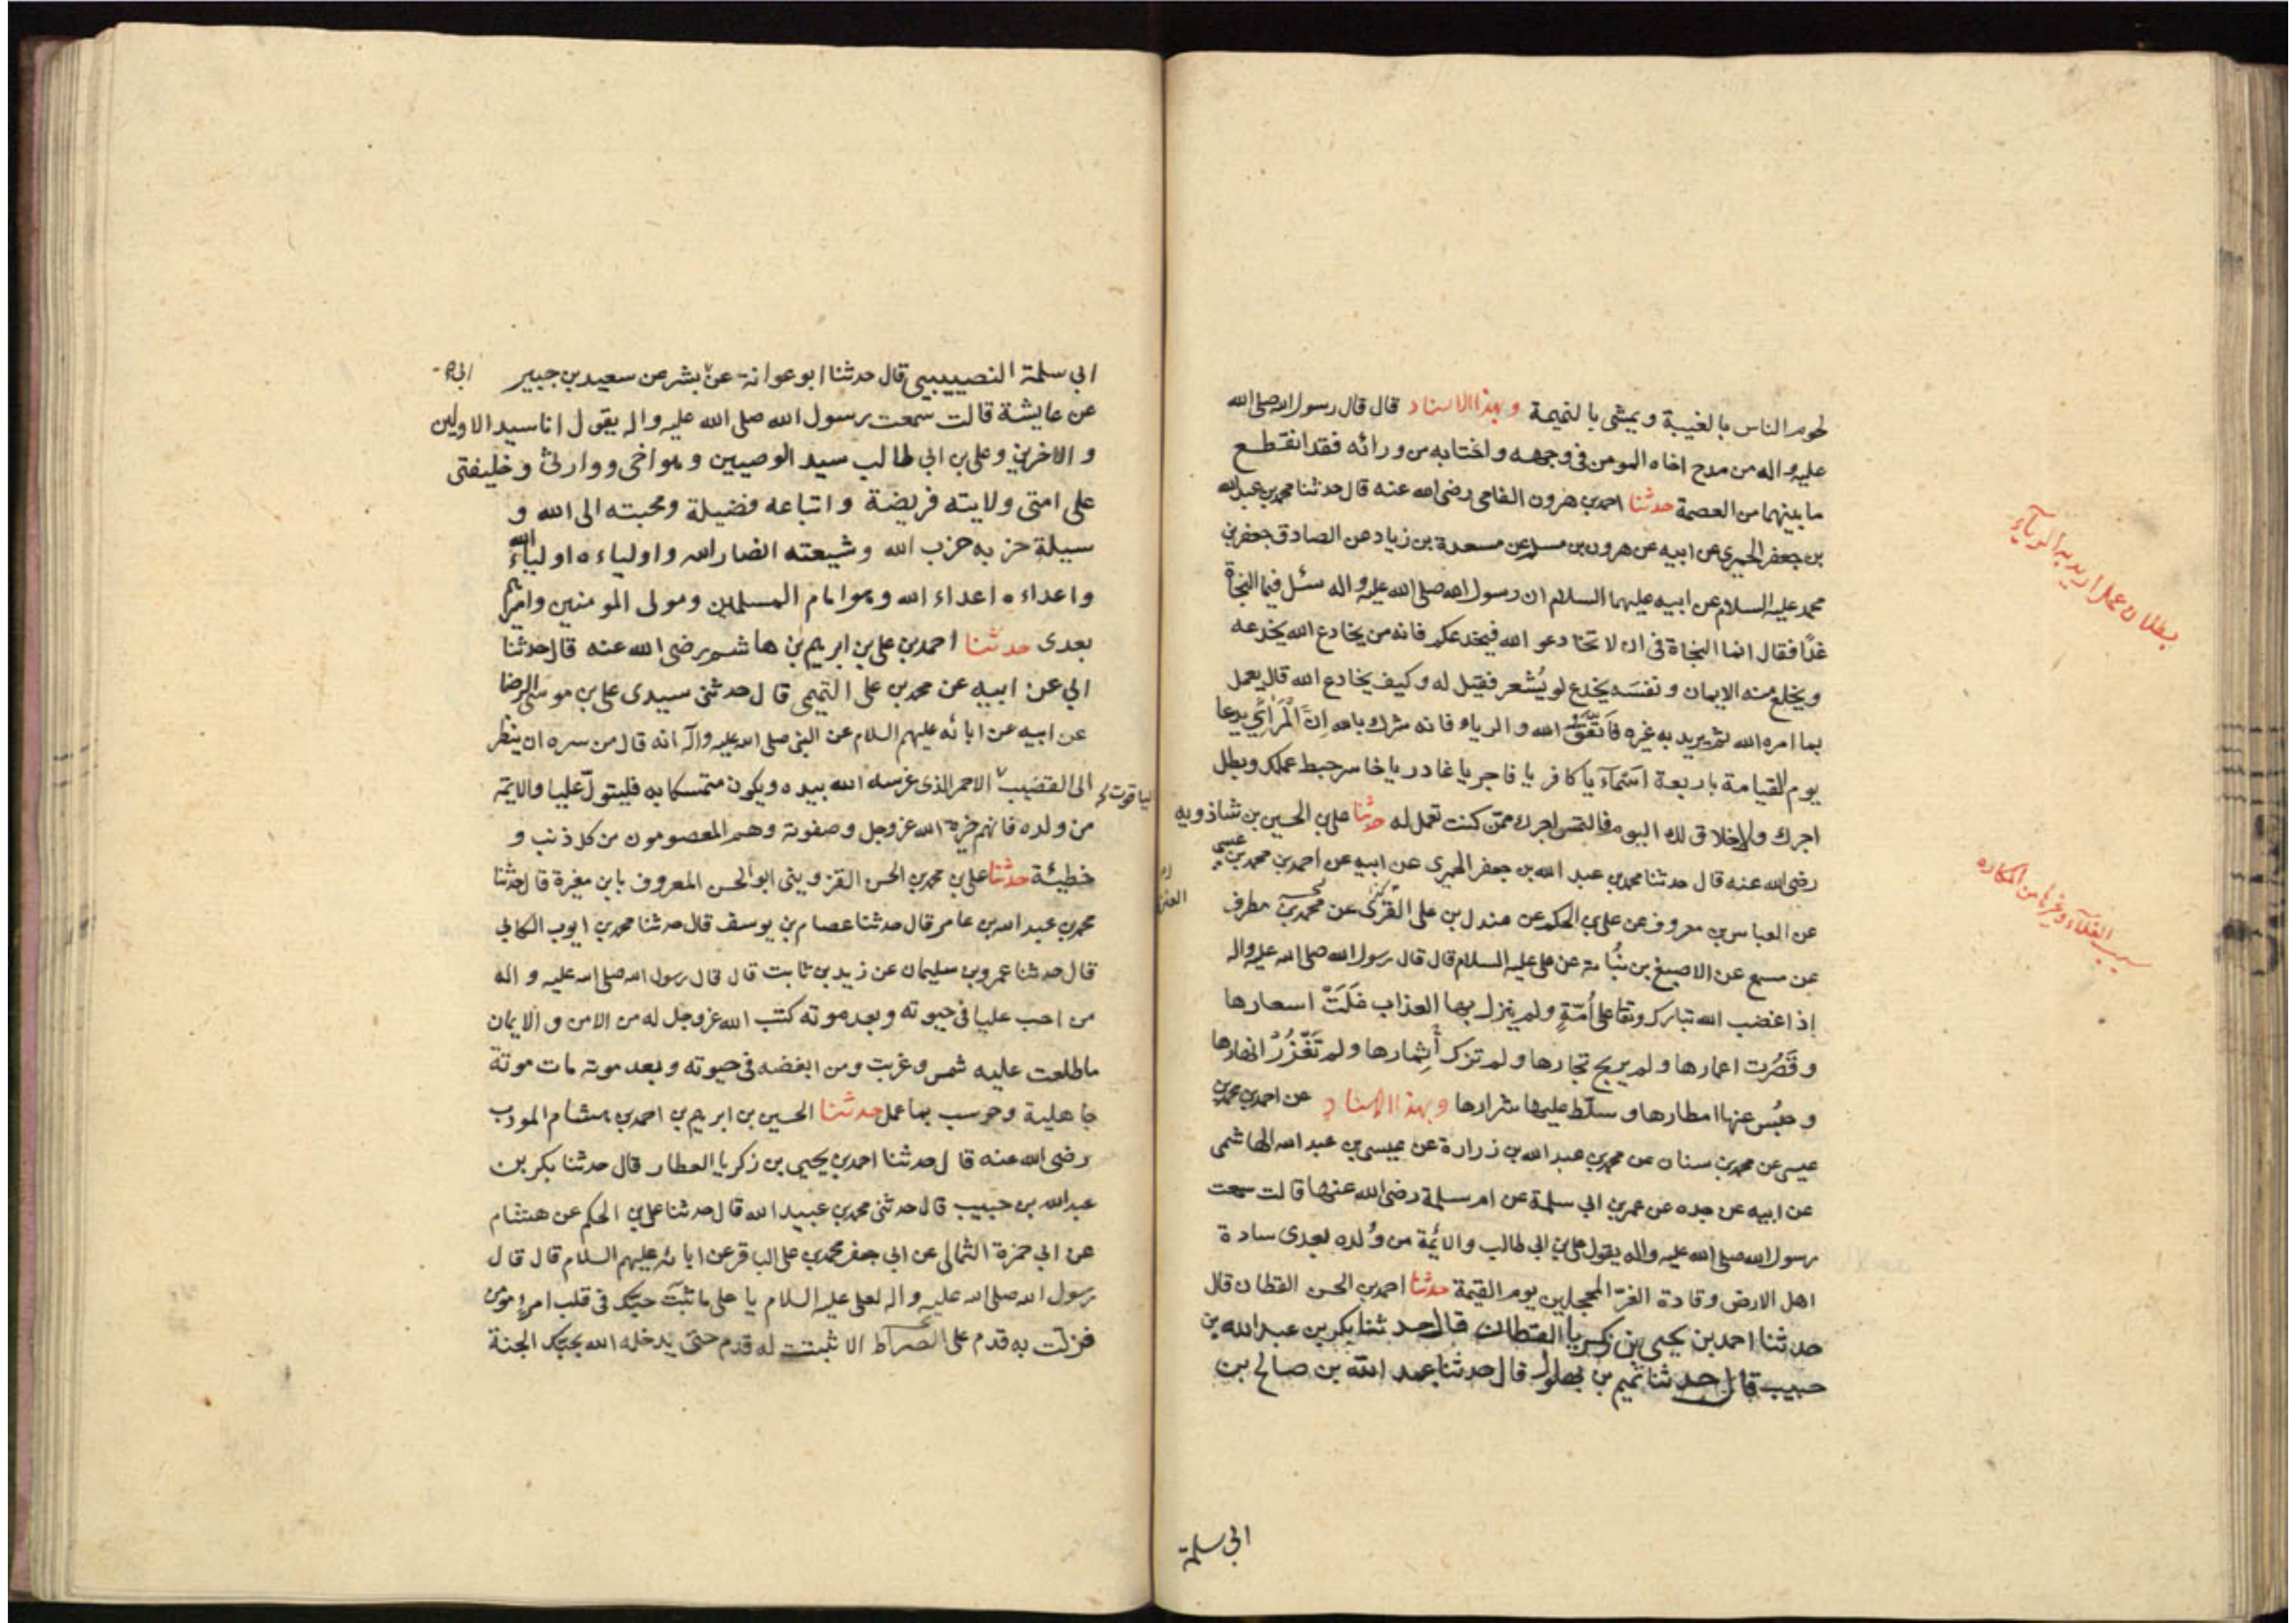 لحوم الناس بالغيبة ويمشي بالنميمة وبهذا الاسناد قال قال رسول الله صلى الله
عليه واله من مدح اخاه المومن فى وجهه واغتابه من ورائه فقد انقطع
ما بينهما من العصمة حدثنا احمد بن هرون الفامى رضى الله عنه قال حدثنا محمد بن عبد الله
بن جعفر الحميري عن ابيه عن هرون بن مسلم عن مسعدة بن زياد عن الصادق جعفر بن
محمد عليه السلام عن ابيه عليهما السلام ان رسول الله صلى الله عليه واله سئل فيما النجاة
غدًا فقال انما النجاة فى ان لا تخادعوا الله فيخدعكم فانه من يخادع الله يخدعه
ويخلع منه الايمان ونفسَه يخدع لو يُشعر فقيل له وكيف يخادع الله قال يعمل
بما امره الله ثم يريد به غيره فاتقوا الله والرياء فانه شرك بالله اِنَّ المُرَائي يدعا
يوم القيامة باربعة اَسْمآء يا كافر يا فاجر يا غادر يا خاسر حبط عملك وبطل
اجرك ولا خلاق لك اليوم فالتمس اجرك ممّن كنت تعمل له حدثنا على بن الحسين بن شاذويه
رضى الله عنه قال حدثنا محمد بن عبد الله بن جعفر الحميرى عن ابيه عن احمد بن محمد بن عيسى
عن العباس بن معروف عن على بن الحكم عن مندل بن على عن محمد بن مطرف
عن مسمع عن الاصبغ بن نُباتة عن على عليه السلام قال قال رسول الله صلى الله عليه واله
إذا غضب الله تبارك وتعا على أُمّةٍ ولم ينزل بها العذاب غَلَتْ اسعارها
وقَصُرت اعمارها ولم يربح تجارها ولم تزك أثمارها ولم تَغْزُرْ انهارها
وحُبِس عنها امطارها وسلّط عليها شرارها وبهذا الاسناد عن احمد بن محمد بن
عيسى عن محمد بن سنان عن محمد بن عبد الله بن زرارة عن عيسى بن عبد الله الهاشمى
عن ابيه عن جده عن عمر بن ابي سلمة عن ام سلمة رضى الله عنها قالت سمعت
رسول الله صلى الله عليه واله يقول على بن ابى طالب والائمة من وُلده بعدى سادة
اهل الارض وقادة الغرّ المحجلين يوم القيمة حدثنا احمد بن الحسن القطان قال
حدثنا احمد بن يحيى بن زكريا القطان قال حدثنا بكر بن عبد الله بن
حبيب قال حدثنا تميم بن بهلول قال حدثنا عبد الله بن صالح بن
ابى سلمة
بطلان عمل اريد به الرياء
سبب الغلاء وغيرها من المكاره
ابى سلمة النصيبيبى قال حدثنا ابو عوانة عن بشر عن سعيد بن جبير
عن عايشة قالت سمعت رسول الله صلى الله عليه واله يقول انا سيد الاولين
والاخرين وعلى بن ابى طالب سيد الوصيين وهو اخى ووارثى وخليفتى
على امتى ولايته فريضة واتباعه فضيلة ومحبته الى الله و
سيلة حزبه حزب الله وشيعته انصار الله واولياءه اولياء الله
واعداءه اعداء الله وهو امام المسلمين ومولى المومنين واميرهم
بعدى حدثنا احمد بن على بن ابرهيم بن هاشم رضى الله عنه قال حدثنا
ابى عن ابيه عن محمد بن على التميمى قال حدثنى سيدى على بن موسى الرضا
عن ابيه عن ابائه عليهم السلام عن النبى صلى الله عليه واله انه قال من سره ان ينظر
الى القضيب الاحمر الذى غرسه الله بيده ويكون متمسكا به فليتولّ عليا والايمّة
من ولده فانهم خيرة الله عز وجل وصفوته وهم المعصومون من كل ذنب و
خطيئة حدثنا على بن محمد بن الحسن القزوينى ابو الحسن المعروف بابن مغيرة قال حدثنا
محمد بن عبد الله بن عامر قال حدثنا عصام بن يوسف قال حدثنا محمد بن ايوب الكلابي
قال حدثنا عمرو بن سليمان عن زيد بن ثابت قال قال رسول الله صلى الله عليه واله
من احب عليا فى حيوته وبعد موته كتب الله عز وجل له من الامن والايمان
ما طلعت عليه شمس وغربت ومن ابغضه فى حيوته وبعد موته مات موتة
جاهلية وحوسب بما عمل حدثنا الحسين بن ابرهيم بن احمد بن هشام المودب
رضى الله عنه قال حدثنا احمد بن يحيى بن زكريا العطار قال حدثنا بكر بن
عبد الله بن حبيب قال حدثنى محمد بن عبيد الله قال حدثنا على بن الحكم عن هشام
عن ابى حمزة الثمالى عن ابى جعفر محمد بن على الباقر عن ابائه عليهم السلام قال قال
رسول الله صلى الله عليه واله لعلى عليه السلام يا على ما ثبت حبك فى قلب امرء مومن
فزلّت به قدم على الصراط الا ثبتت له قدم حتى يدخله الله بحبك الجنة
الياقوت